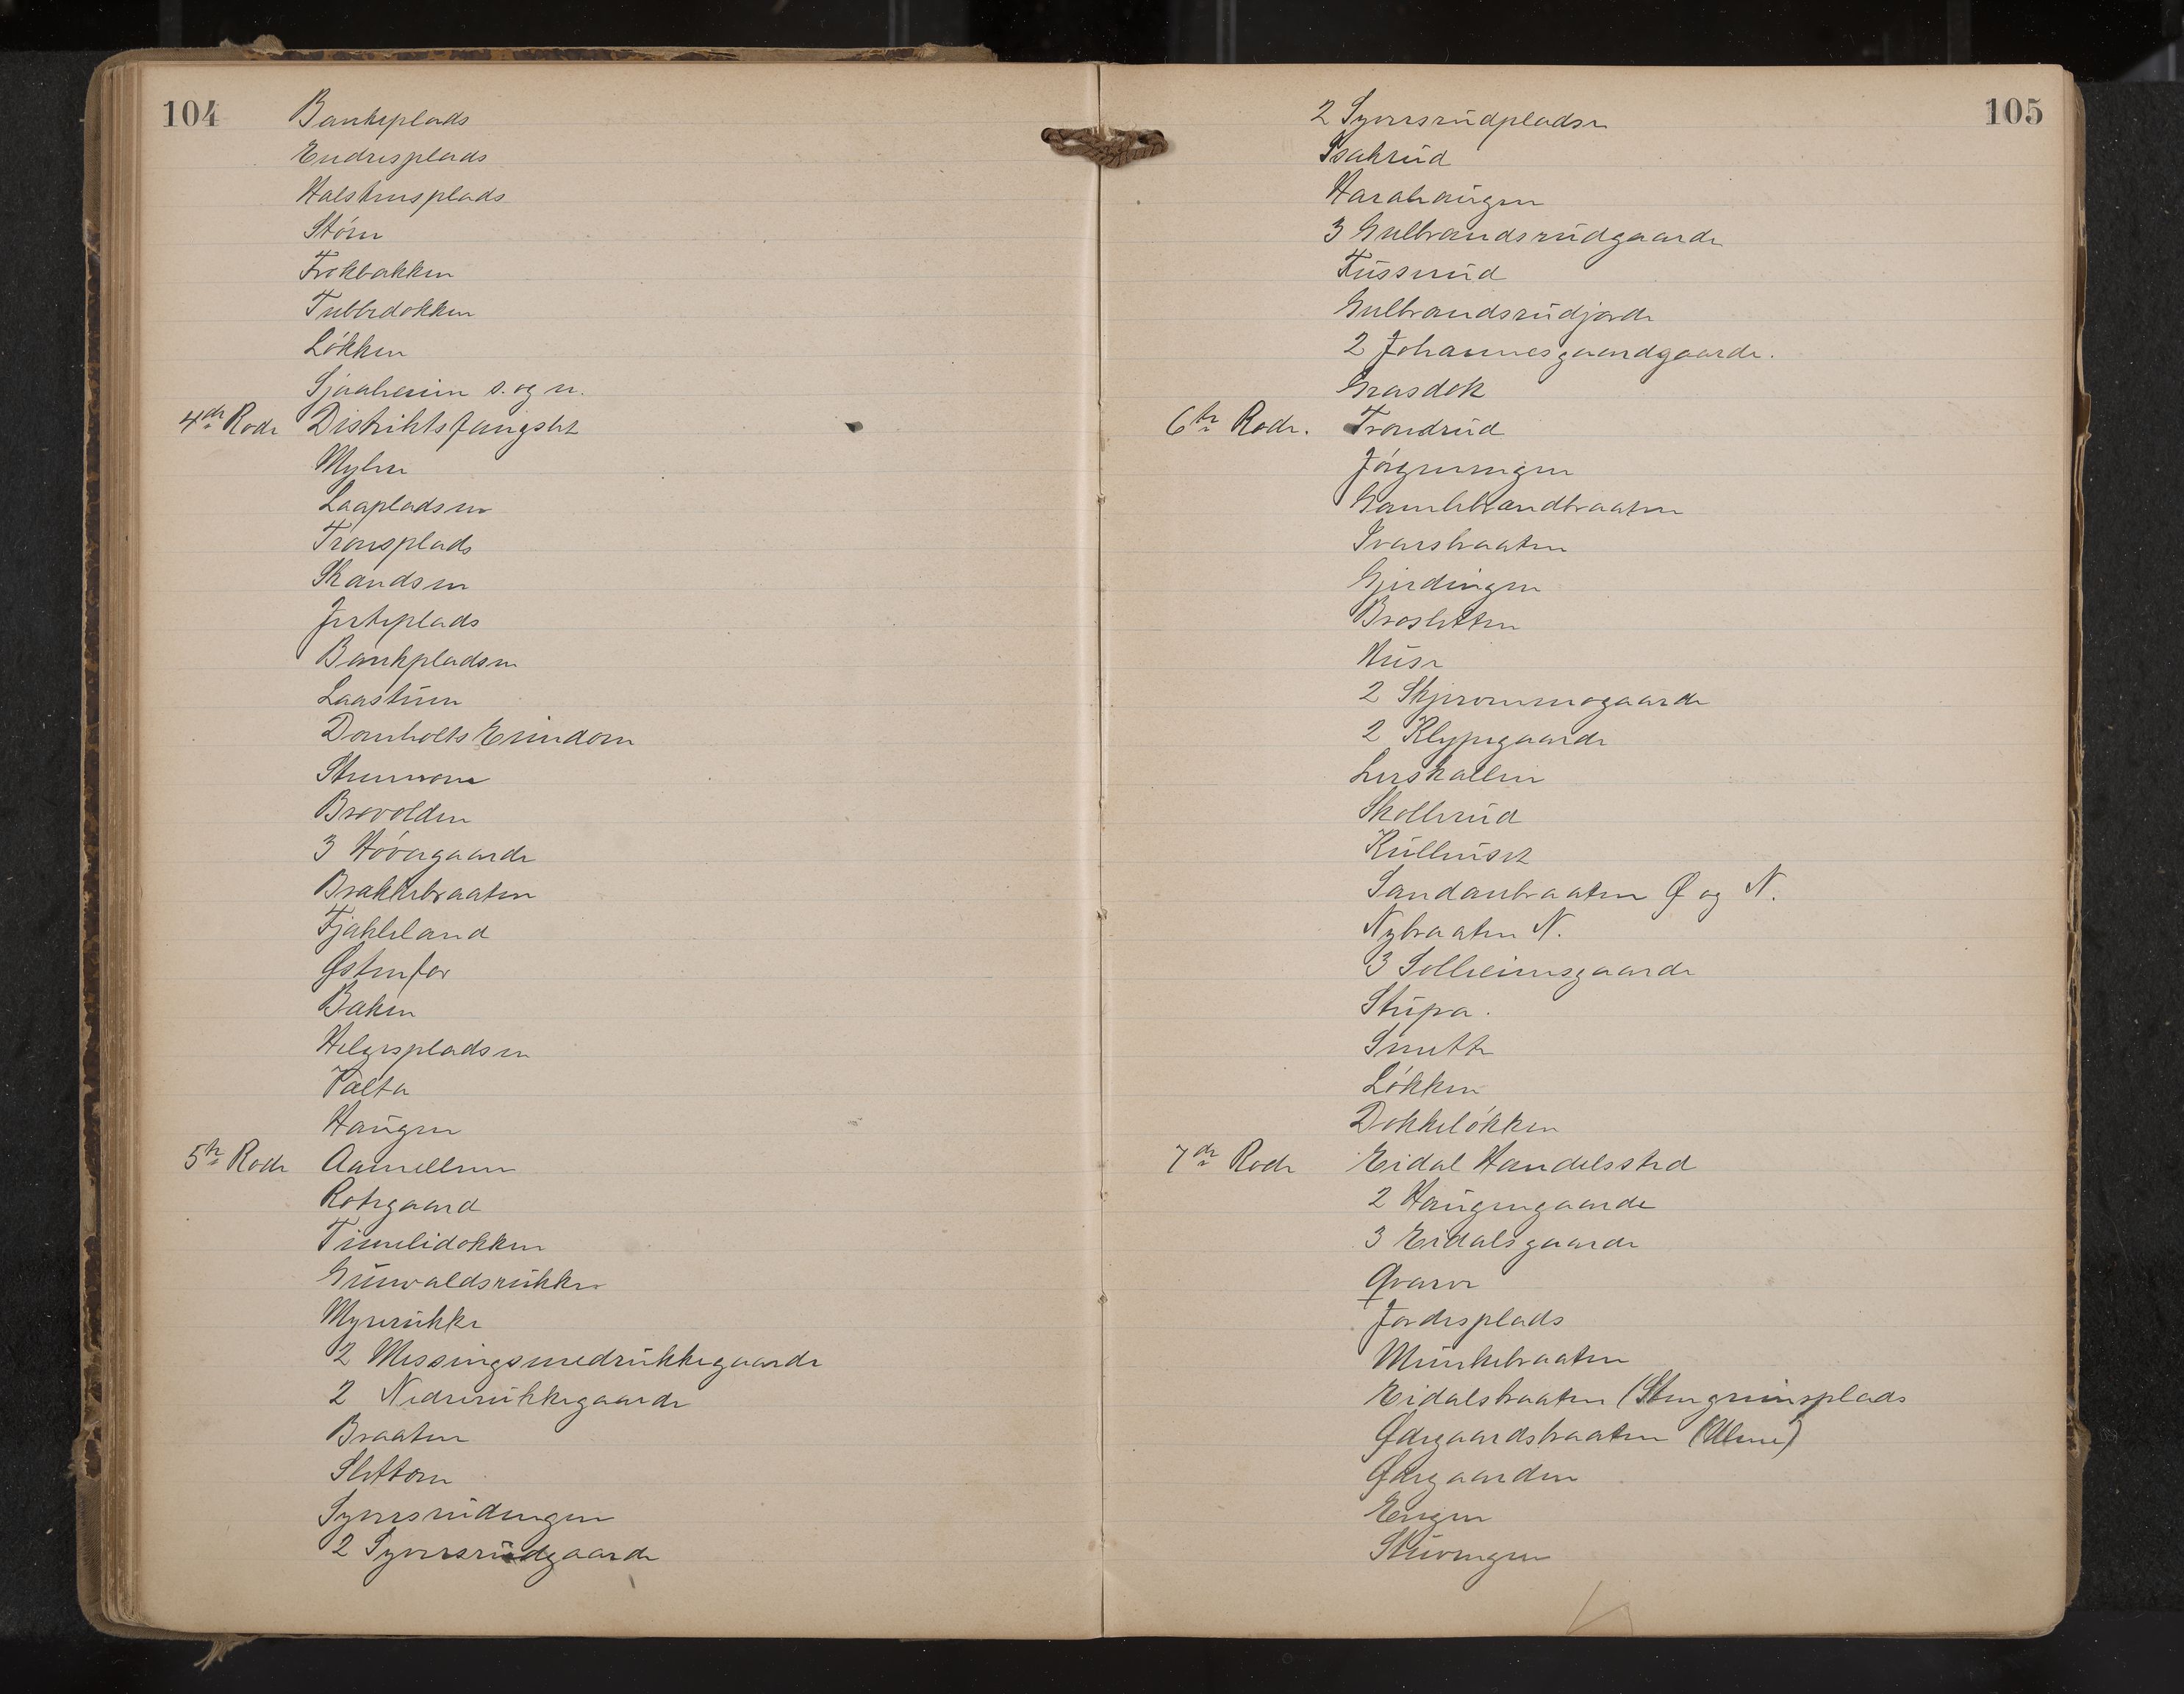 104
Bankeplads
Endresplads
Halstensplads
Støen
Frokbakken
Tubbedokken
Løkken
Sjaaheim s. og n.
4de Rode Distriktsfængslet
Mylna
Laapladsen
Tronsplads
Skandsen
Jerteplads
Bankpladsen
Laastuen
Domholts Eiendom
Brovolden
3 Høvergaarde
Brakkebraaten
Fjakleland
Østenfor
Baken
Helgespladsen
Valta
Haugen
5te Rode Aamellem
Rotegaard
Timelidokken
Gunvaldsrukke
Myrerukke
2 Messingsmedrukkegaarde
2 Nedrerukkegaarde
Braaten
Sletton
Syversrudengen
2 Syversrudgaarde
105
2 Syversrudpladse
Isakrud
Harahaugen
3 Gulbrandsrudgaarde
Tussrud
Gulbrandsrudjorde
2 Johannesgaardgaarde.
Grasdok
6te Rode. Trondrud
Jørgenengen
Gamlebrandbraaten
Ivarsbraaten
Gjerdingen
Brosletten
Huse
2 Skjerommogaarde
2 Klypegaarde
Lerskallen
Skollerud
Kulhuset
Sandanbraaten Ø og N.
Nybraaten N.
3 Solheimsgaarde
Stupa.
Smette
Løkken
Dokkeløkken
7de Rode Eidal Handelssted
2 Haugengaarde
3 Eidalsgaarde
Qvarve
Jordesplads
Munkebraaten
Eidalsbraaten (Stengrimsplads
Ødegaardsbraaten (Alme)
Ødegaarden
Engen
Stuvengen